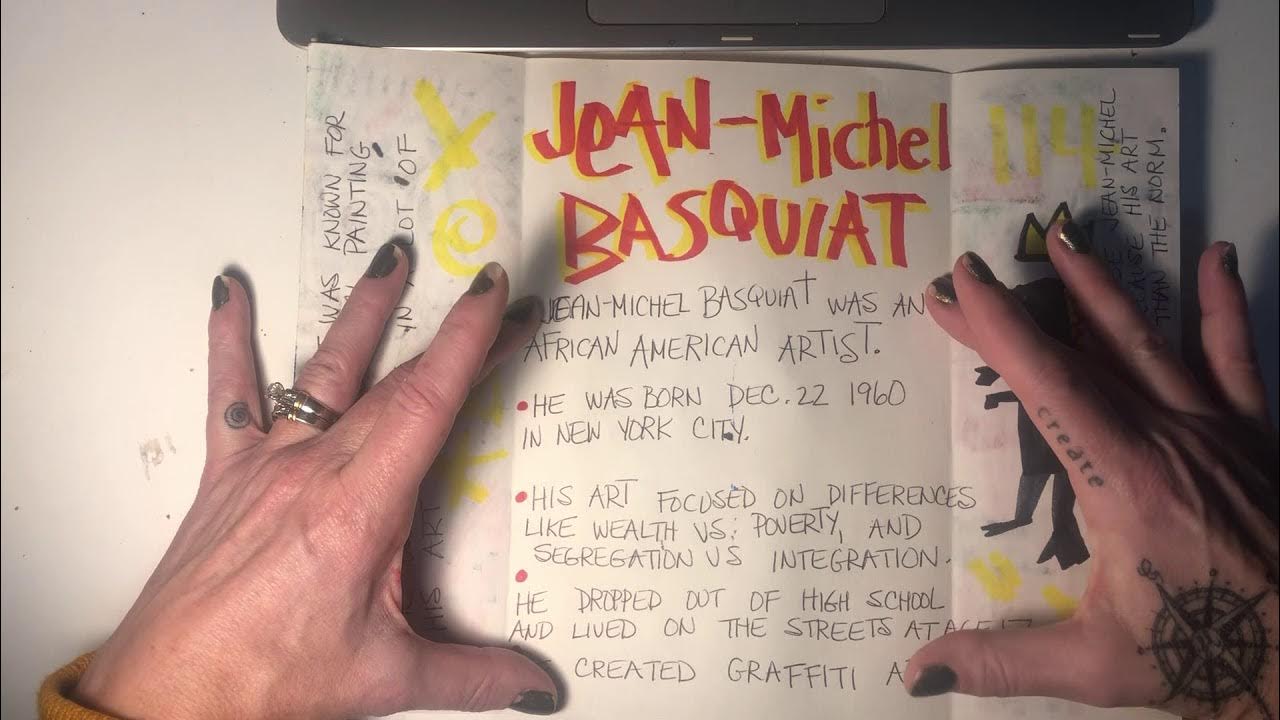 JEAN-MICHEL
BASQUIAT
JEAN-MICHEL BASQUIAT WAS AN
AFRICAN AMERICAN ARTIST.
• HE WAS BORN DEC. 22 1960
IN NEW YORK CITY.
• HIS ART FOCUSED ON DIFFERENCES
LIKE WEALTH VS. POVERTY, AND
SEGREGATION VS INTEGRATION.
• HE DROPPED OUT OF HIGH SCHOOL
AND LIVED ON THE STREETS AT AGE 17
CREATED GRAFFITI
WAS KNOWN FOR
PAINTING
LOT OF
HIS ART
114
JEAN-MICHEL
HIS ART
THAN THE NORM.
create